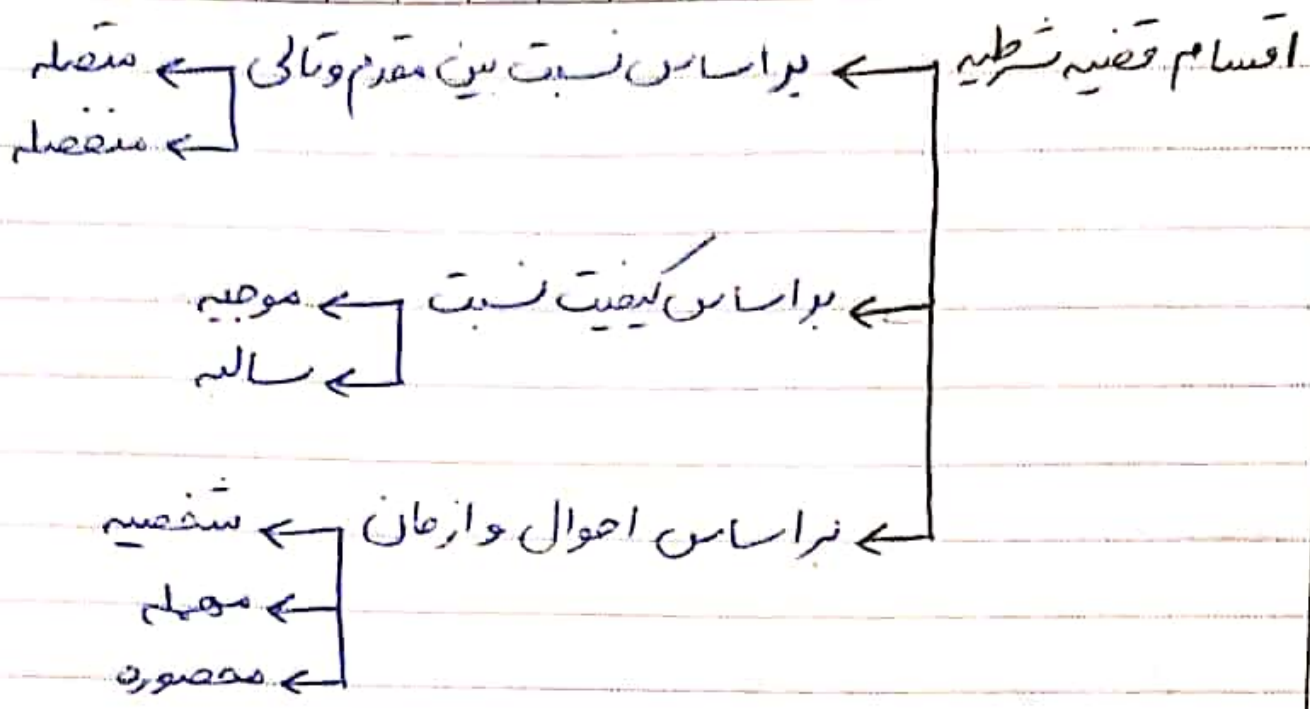 اقسام قضیه شرطیه ← براساس نسبت بین مقدم و تالی ← متصله
← منفصله
← براساس کیفیت نسبت ← موجبه
← سالبه
← براساس احوال و ازمان ← شخصیه
← مهمله
← محصوره